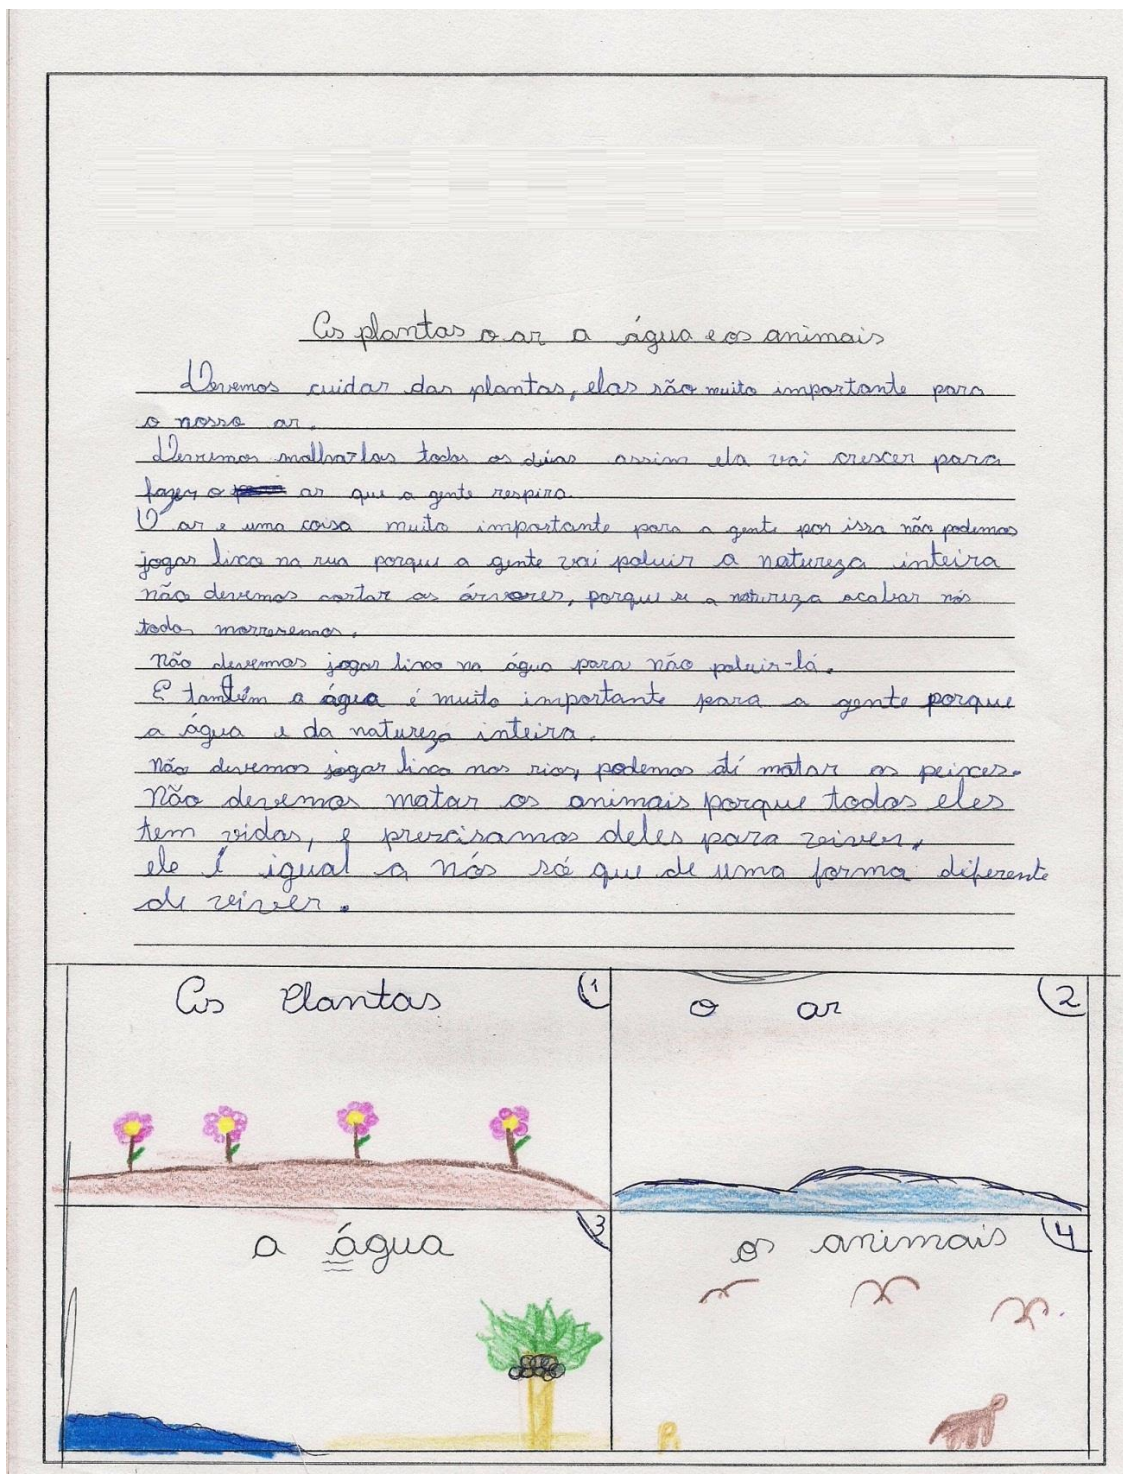 As plantas o ar a água e os animais
Devemos cuidar das plantas, elas são muito importante para
o nosso ar.
Devemos molha-las todos os dias assim ela vai crescer para
fazer o ar que a gente respira.
O ar e uma coisa muito importante para a gente por isso não podemos
jogar lixo na rua porque a gente vai poluir a natureza inteira
não devemos cortar as árvores, porque se a natureza acabar nós
todos morresemos.
Não devemos jogar lixo na água para não poluir-lá.
E também a água é muito importante para a gente porque
a água e da natureza inteira.
Não devemos jogar lixo nos rios, podemos atí matar os peixes.
Não devemos matar os animais porque todos eles
tem vidas, e precisamos deles para viver,
ele é igual a nós só que de uma forma diferente
de viver.
As Plantas 1
o ar 2
a água 3
os animais 4